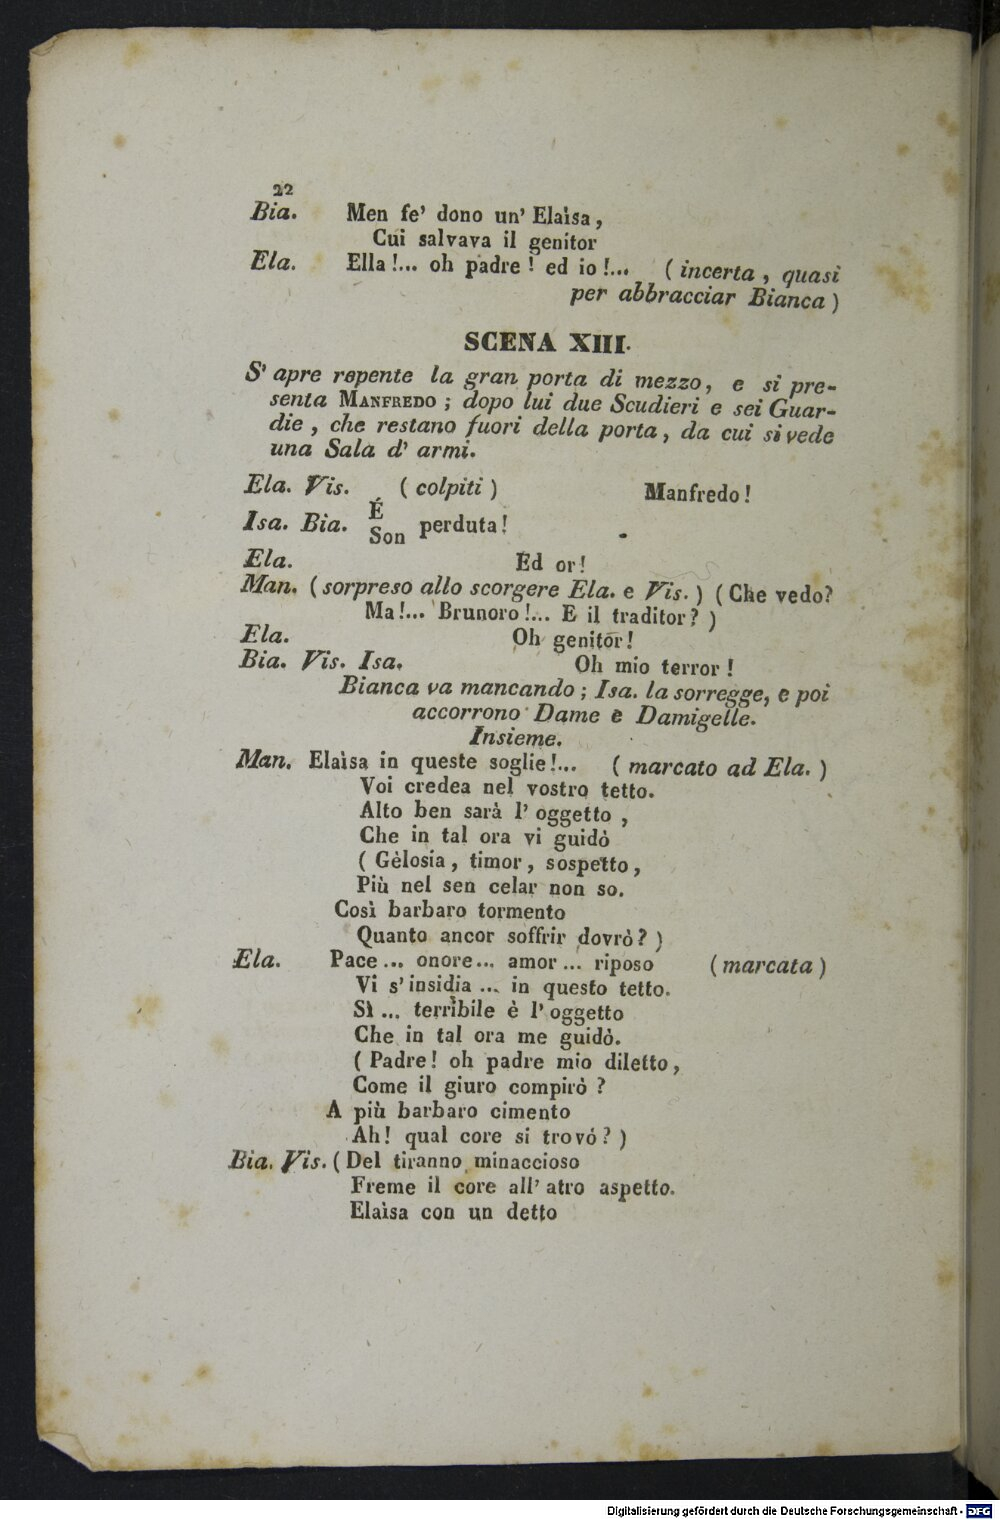 22
Bia. Men fe' dono un' Elaisa,
Cui salvava il genitor
Ela. Ella!... oh padre! ed io!... (incerta, quasi
per abbracciar Bianca)
SCENA XIII.
S' apre repente la gran porta di mezzo, e si pre-
senta MANFREDO; dopo lui due Scudieri e sei Guar-
die, che restano fuori della porta, da cui si vede
una Sala d' armi.
Ela. Vis. (colpiti) Manfredo!
É
Isa. Bia. Son perduta!
Ela. Ed or!
Man. (sorpreso allo scorgere Ela. e Vis.) (Che vedo?
Ma!... Brunoro!... E il traditor?)
Ela. Oh genitor!
Bia. Vis. Isa. Oh mio terror!
Bianca va mancando; Isa. la sorregge, e poi
accorrono Dame e Damigelle.
Insieme.
Man. Elaisa in queste soglie!... (marcato ad Ela.)
Voi credea nel vostro tetto.
Alto ben sarà l' oggetto,
Che in tal ora vi guidò
(Gèlosia, timor, sospetto,
Più nel sen celar non so.
Così barbaro tormento
Quanto ancor soffrir dovrò?)
Ela. Pace... onore... amor... riposo (marcata)
Vi s' insidia... in questo tetto.
Sì... terribile è l' oggetto
Che in tal ora me guidò.
(Padre! oh padre mio diletto,
Come il giuro compirò?
A più barbaro cimento
Ah! qual core si trovó?)
Bia. Vis. (Del tiranno minaccioso
Freme il core all' atro aspetto.
Elaisa con un detto
Digitalisierung gefördert durch die Deutsche Forschungsgemeinschaft - DFG